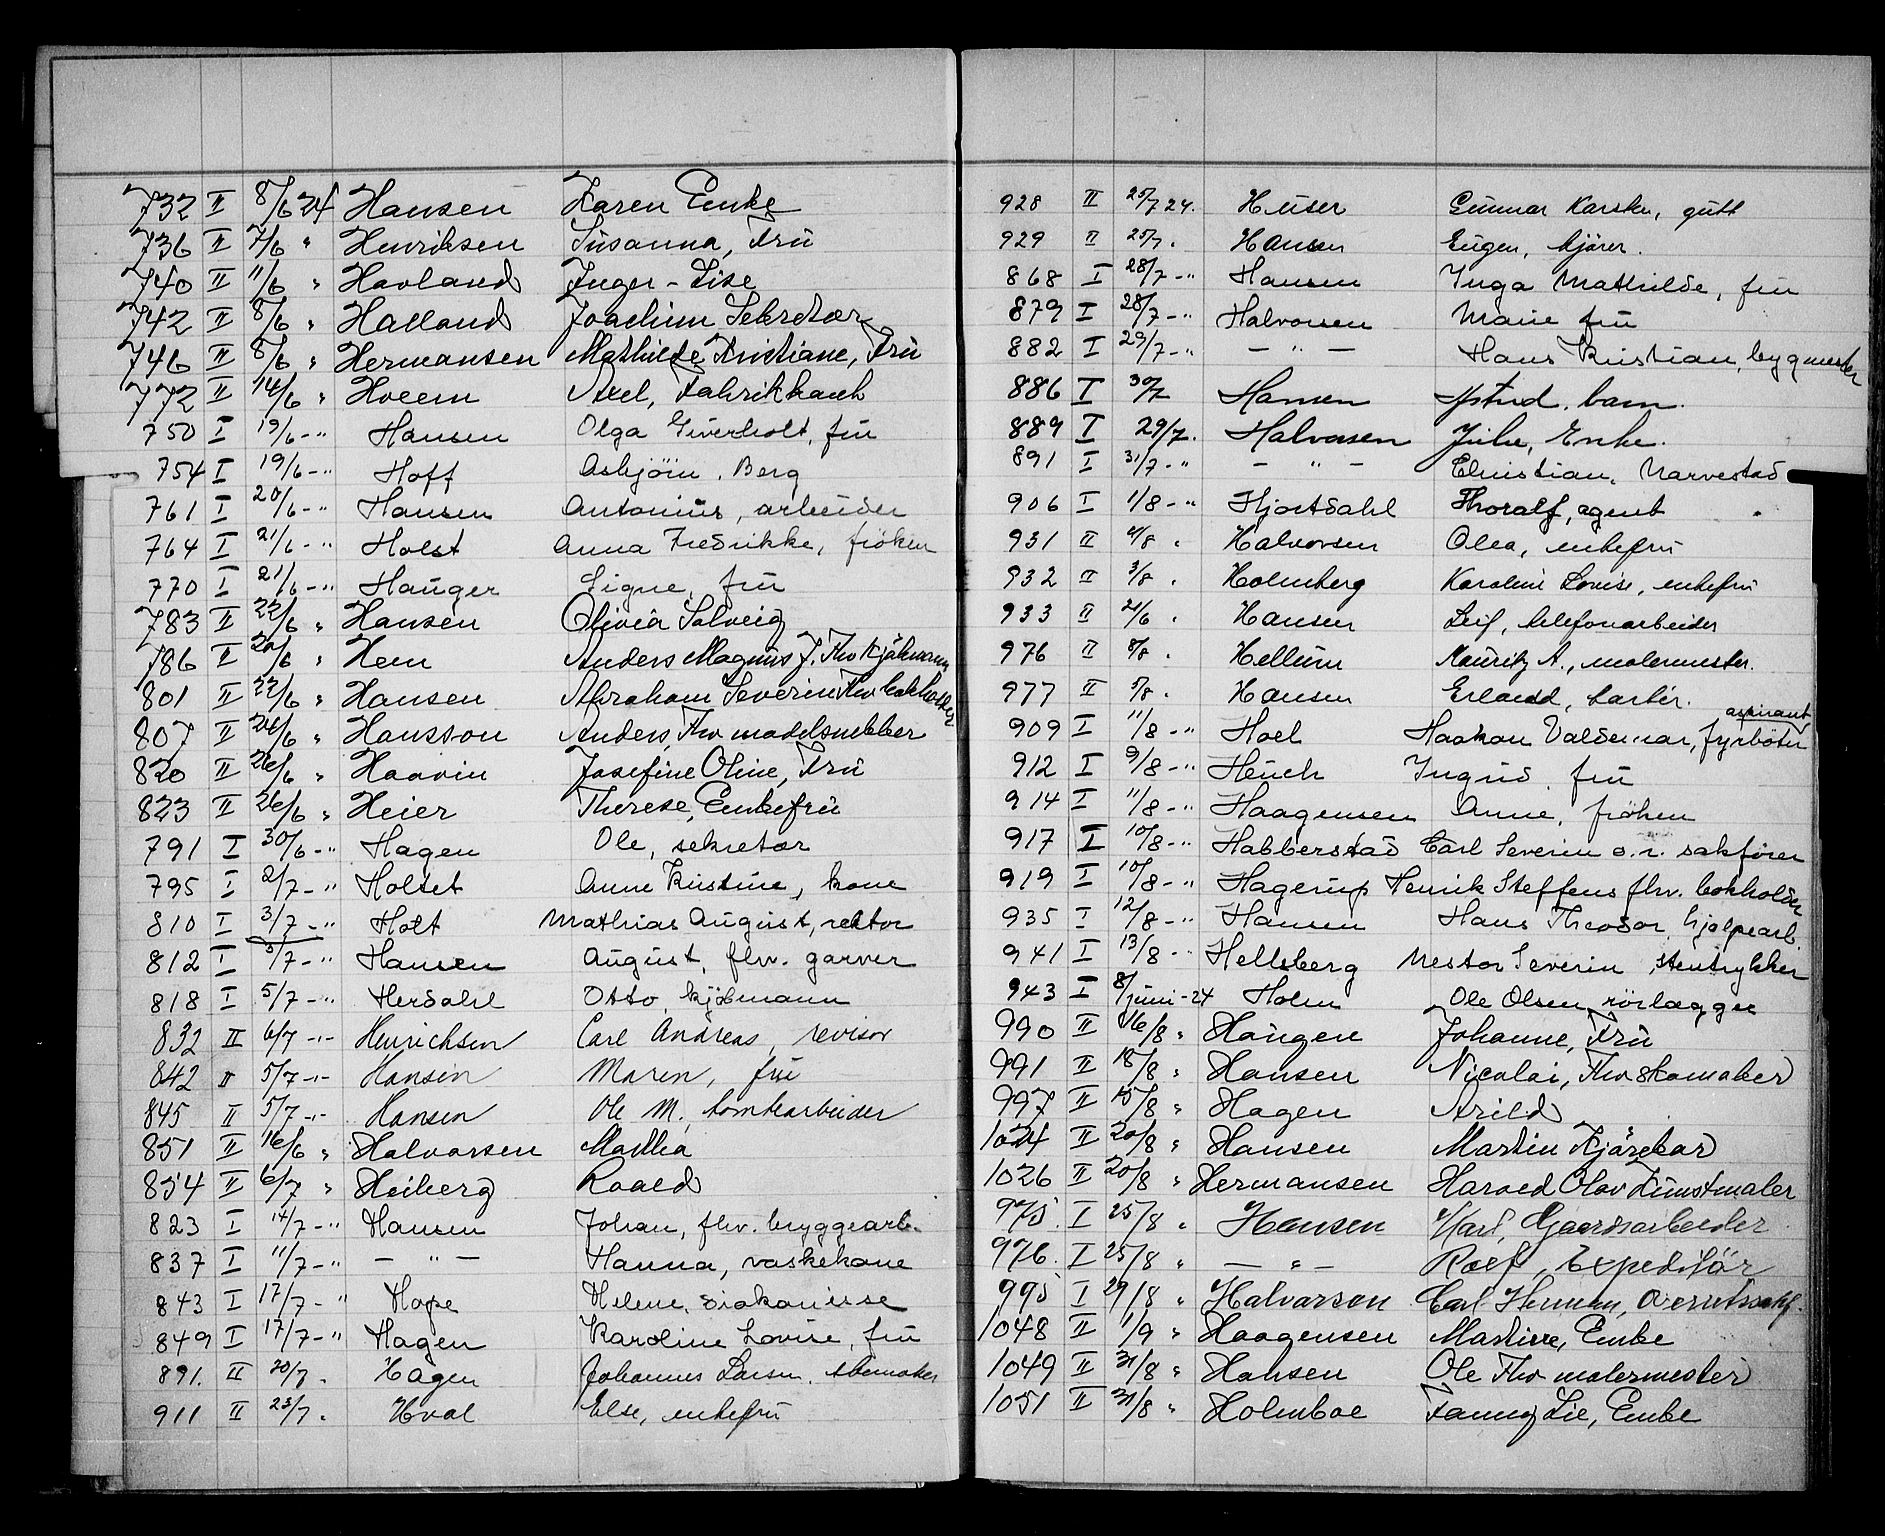 732 II 8/6 24 Hansen Karen Enke
736 II 7/6 " Henriksen Susanna, Fru
740 II 11/6 " Havland Inger-Lise
742 II 8/6 " Halland Joachim Sekretær
746 II 8/6 " Hermansen Mathilde Kristiane, Fru
772 II 14/6 " Hveem Axel, Fabrikkarb
750 I 19/6 -" Hansen Olga Giverholt, fru
754 I 19/6 -" Hoff Asbjörn, Berg
761 I 20/6 -" Hansen Antonius, arbeider
764 I 21/6 -" Holst Anna Fredrikke, fröken
770 I 21/6 -" Hauger Signe, fru
783 II 22/6 " Hansen Olivia Solveig
786 II 20/6 " Hem Anders Magnus J. Fhv Kjöbmann
801 II 22/6 " Hansen Abraham Severin Fhv bokholder
807 II 24/6 " Hansson Anders, Fhv modelsnekker
820 II 26/6 " Haavin Josefine Oline, Fru
823 II 26/6 " Heier Therese, Enkefru
791 I 30/6 -" Hagen Ole, sekretær
795 I 2/7 -" Holset Anne Kristine, kone
810 I 3/7 -" Holt Mathias August, rektor
812 I 3/7 -" Hansen August, fhv. garver
818 I 5/7 -" Herdahl Otto, kjöbmann
832 II 6/7 -"- Henrichsen Carl Andreas, revisor
842 II 5/7 -"- Hansen Maren, fru
845 II 5/7 -"- Hansen Ole M. tomtearbeider
851 II 16/6 " Halvorsen Martha
854 II 6/7 " Heiberg Roald
823 I 14/7 -" Hansen Johan, fhv. bryggearb.
837 I 11/7 -" — " — Hanna, vaskekone
843 I 17/7 -" Hope Helene, diakonisse
849 I 17/7 -" Hagen Karoline Lovise, fru
891. II 20/7. Hagen Johannes Larsen, skomaker
911 II 23/7. Hval Else, enkefru
928 II 25/7 24. Huser Gunnar Karsten, gutt
929 II 25/7. Hansen Eugen, kjörer.
868 I 28/7 -" Hansen Inga Mathilde, fru
879 I 28/7 -" Halvorsen Marie fru
882 I 29/7 -" — " — Hans Kristian, bygmester
886 I 30/7 Hansen Astrid, barn.
889 I 29/7. Halvorsen Julie, Enke.
891 I 31/7 -" — " — Christian, Narvestad
906 I 1/8 -" Hjortdahl Thoralf, agent
931 II 4/8 " Halvorsen Olea, enkefru
932 II 3/8 " Holmberg Karoline Lovise, enkefru
933 II 21/6 " Hansen Leif, telefonarbeider
976 II 8/8 " Hellum Mauritz A., malermester.
977 II 5/8 " Hansen Erland, barbér.
909 I 11/8 -" Hoel Haakon Valdemar, fyrböter aspirant
912 I 9/8 -" Heuch Ingrid fru
914 I 11/8 -" Haagensen Anne, fröken
917 I 10/8 -" Habberstad Carl Severin o.r. sakförer
919 I 10/8 -" Hagerup Henrik Steffens fhv. bokholder
935 I 12/8 -" Hansen Hans Theodor, hjelpearb.
941 I 13/8 -" Hellsberg Nestor Severin, stentrykker
943 I 8/juni-24 Holm Ole Olsen, rörlægger
990 II 16/8 " Haugen Johanne, Fru
991 II 18/8 " Hansen Nicolai, Fhv skomaker
997 II 15/8 " Hagen Arild
1024 II 20/8 " Hansen Martin Kjörekar
1026 II 20/8 " Hermansen Harald Olav Kunstmaler
975. I 25/8 " Hansen Karl, Gaardsarbeider
976. I 25/8 " — " — Rolf, Expeditör
995 I 29/8 " Halvorsen Carl Herman, Overretssakf.
1048 II 1/9 " Haagensen Martine, Enke
1049 II 31/8 " Hansen Ole Fhv malermester
1051 II 31/8 " Holmboe Fanny Lie, Enke